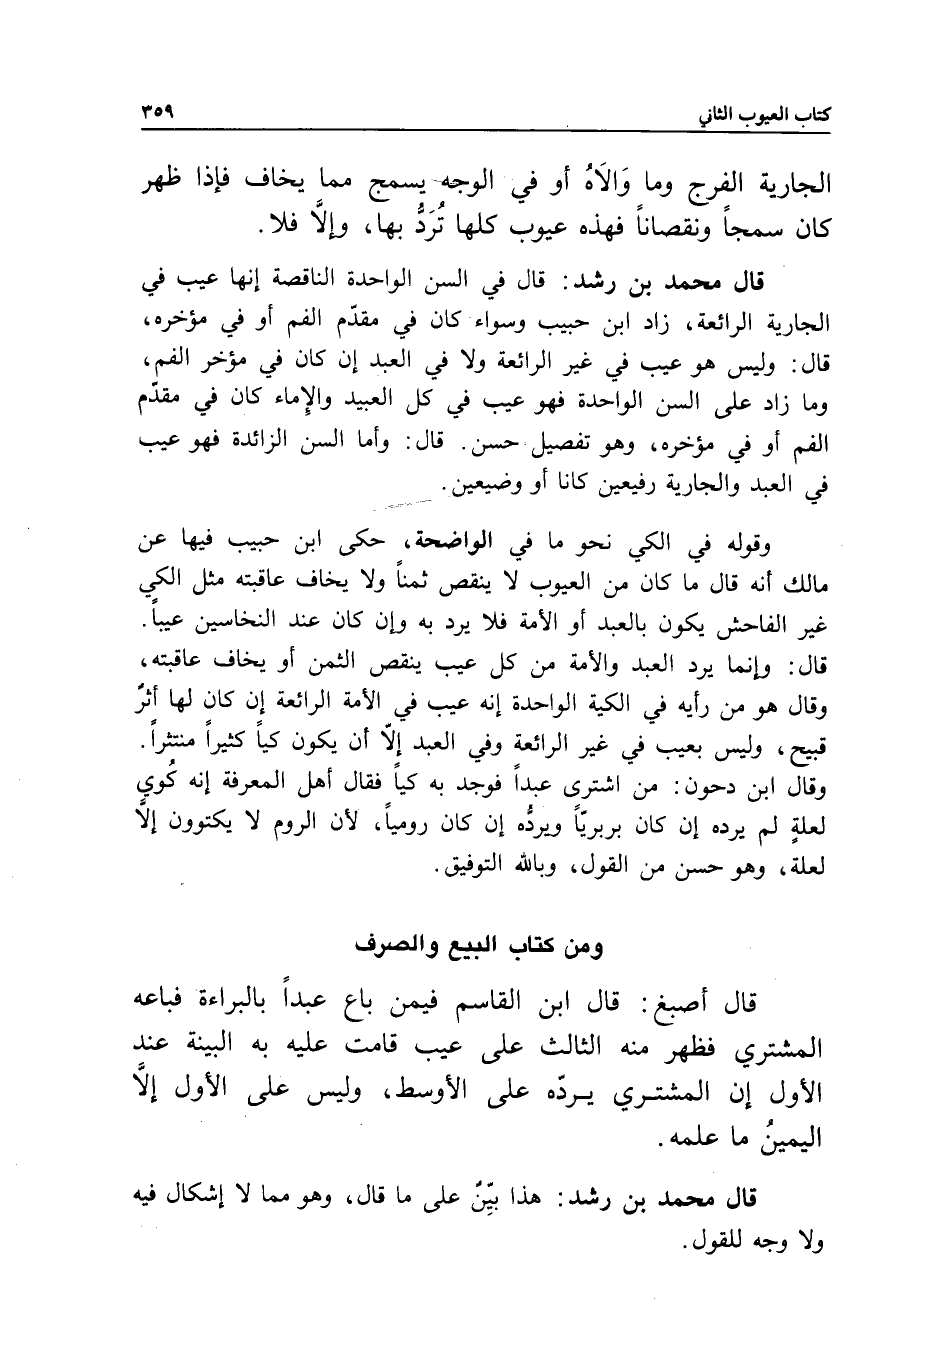 كتاب العيوب الثاني ٣٥٩
الجارية الفرج وما وَالَاهُ أو في الوجه يسمج مما يخاف فإذا ظهر
كان سمجاً ونقصاناً فهذه عيوب كلها تُرَدُّ بها، وإلَّا فلا.
قال محمد بن رشد: قال في السن الواحدة الناقصة إنها عيب في
الجارية الرائعة، زاد ابن حبيب وسواء كان في مقدّم الفم أو في مؤخره،
قال: وليس هو عيب في غير الرائعة ولا في العبد إن كان في مؤخر الفم،
وما زاد على السن الواحدة فهو عيب في كل العبيد والإماء كان في مقدّم
الفم أو في مؤخره، وهو تفصيل حسن. قال: وأما السن الزائدة فهو عيب
في العبد والجارية رفيعين كانا أو وضيعين.
وقوله في الكي نحو ما في الواضحة، حكى ابن حبيب فيها عن
مالك أنه قال ما كان من العيوب لا ينقص ثمناً ولا يخاف عاقبته مثل الكي
غير الفاحش يكون بالعبد أو الأمة فلا يرد به وإن كان عند النخاسين عيباً.
قال: وإنما يرد العبد والأمة من كل عيب ينقص الثمن أو يخاف عاقبته،
وقال هو من رأيه في الكية الواحدة إنه عيب في الأمة الرائعة إن كان لها أثرٌ
قبيح، وليس بعيب في غير الرائعة وفي العبد إلّا أن يكون كياً كثيراً منتثراً.
وقال ابن دحون: من اشترى عبداً فوجد به كياً فقال أهل المعرفة إنه كُوي
لعلةٍ لم يرده إن كان بربريّاً ويردُّه إن كان رومياً، لأن الروم لا يكتوون إلَّا
لعلة، وهو حسن من القول، وبالله التوفيق.
ومن كتاب البيع والصرف
قال أصبغ: قال ابن القاسم فيمن باع عبداً بالبراءة فباعه
المشتري فظهر منه الثالث على عيب قامت عليه به البينة عند
الأول إن المشتري يردّه على الأوسط، وليس على الأول إلَّا
اليمينُ ما علمه.
قال محمد بن رشد: هذا بيّنٌ على ما قال، وهو مما لا إشكال فيه
ولا وجه للقول.